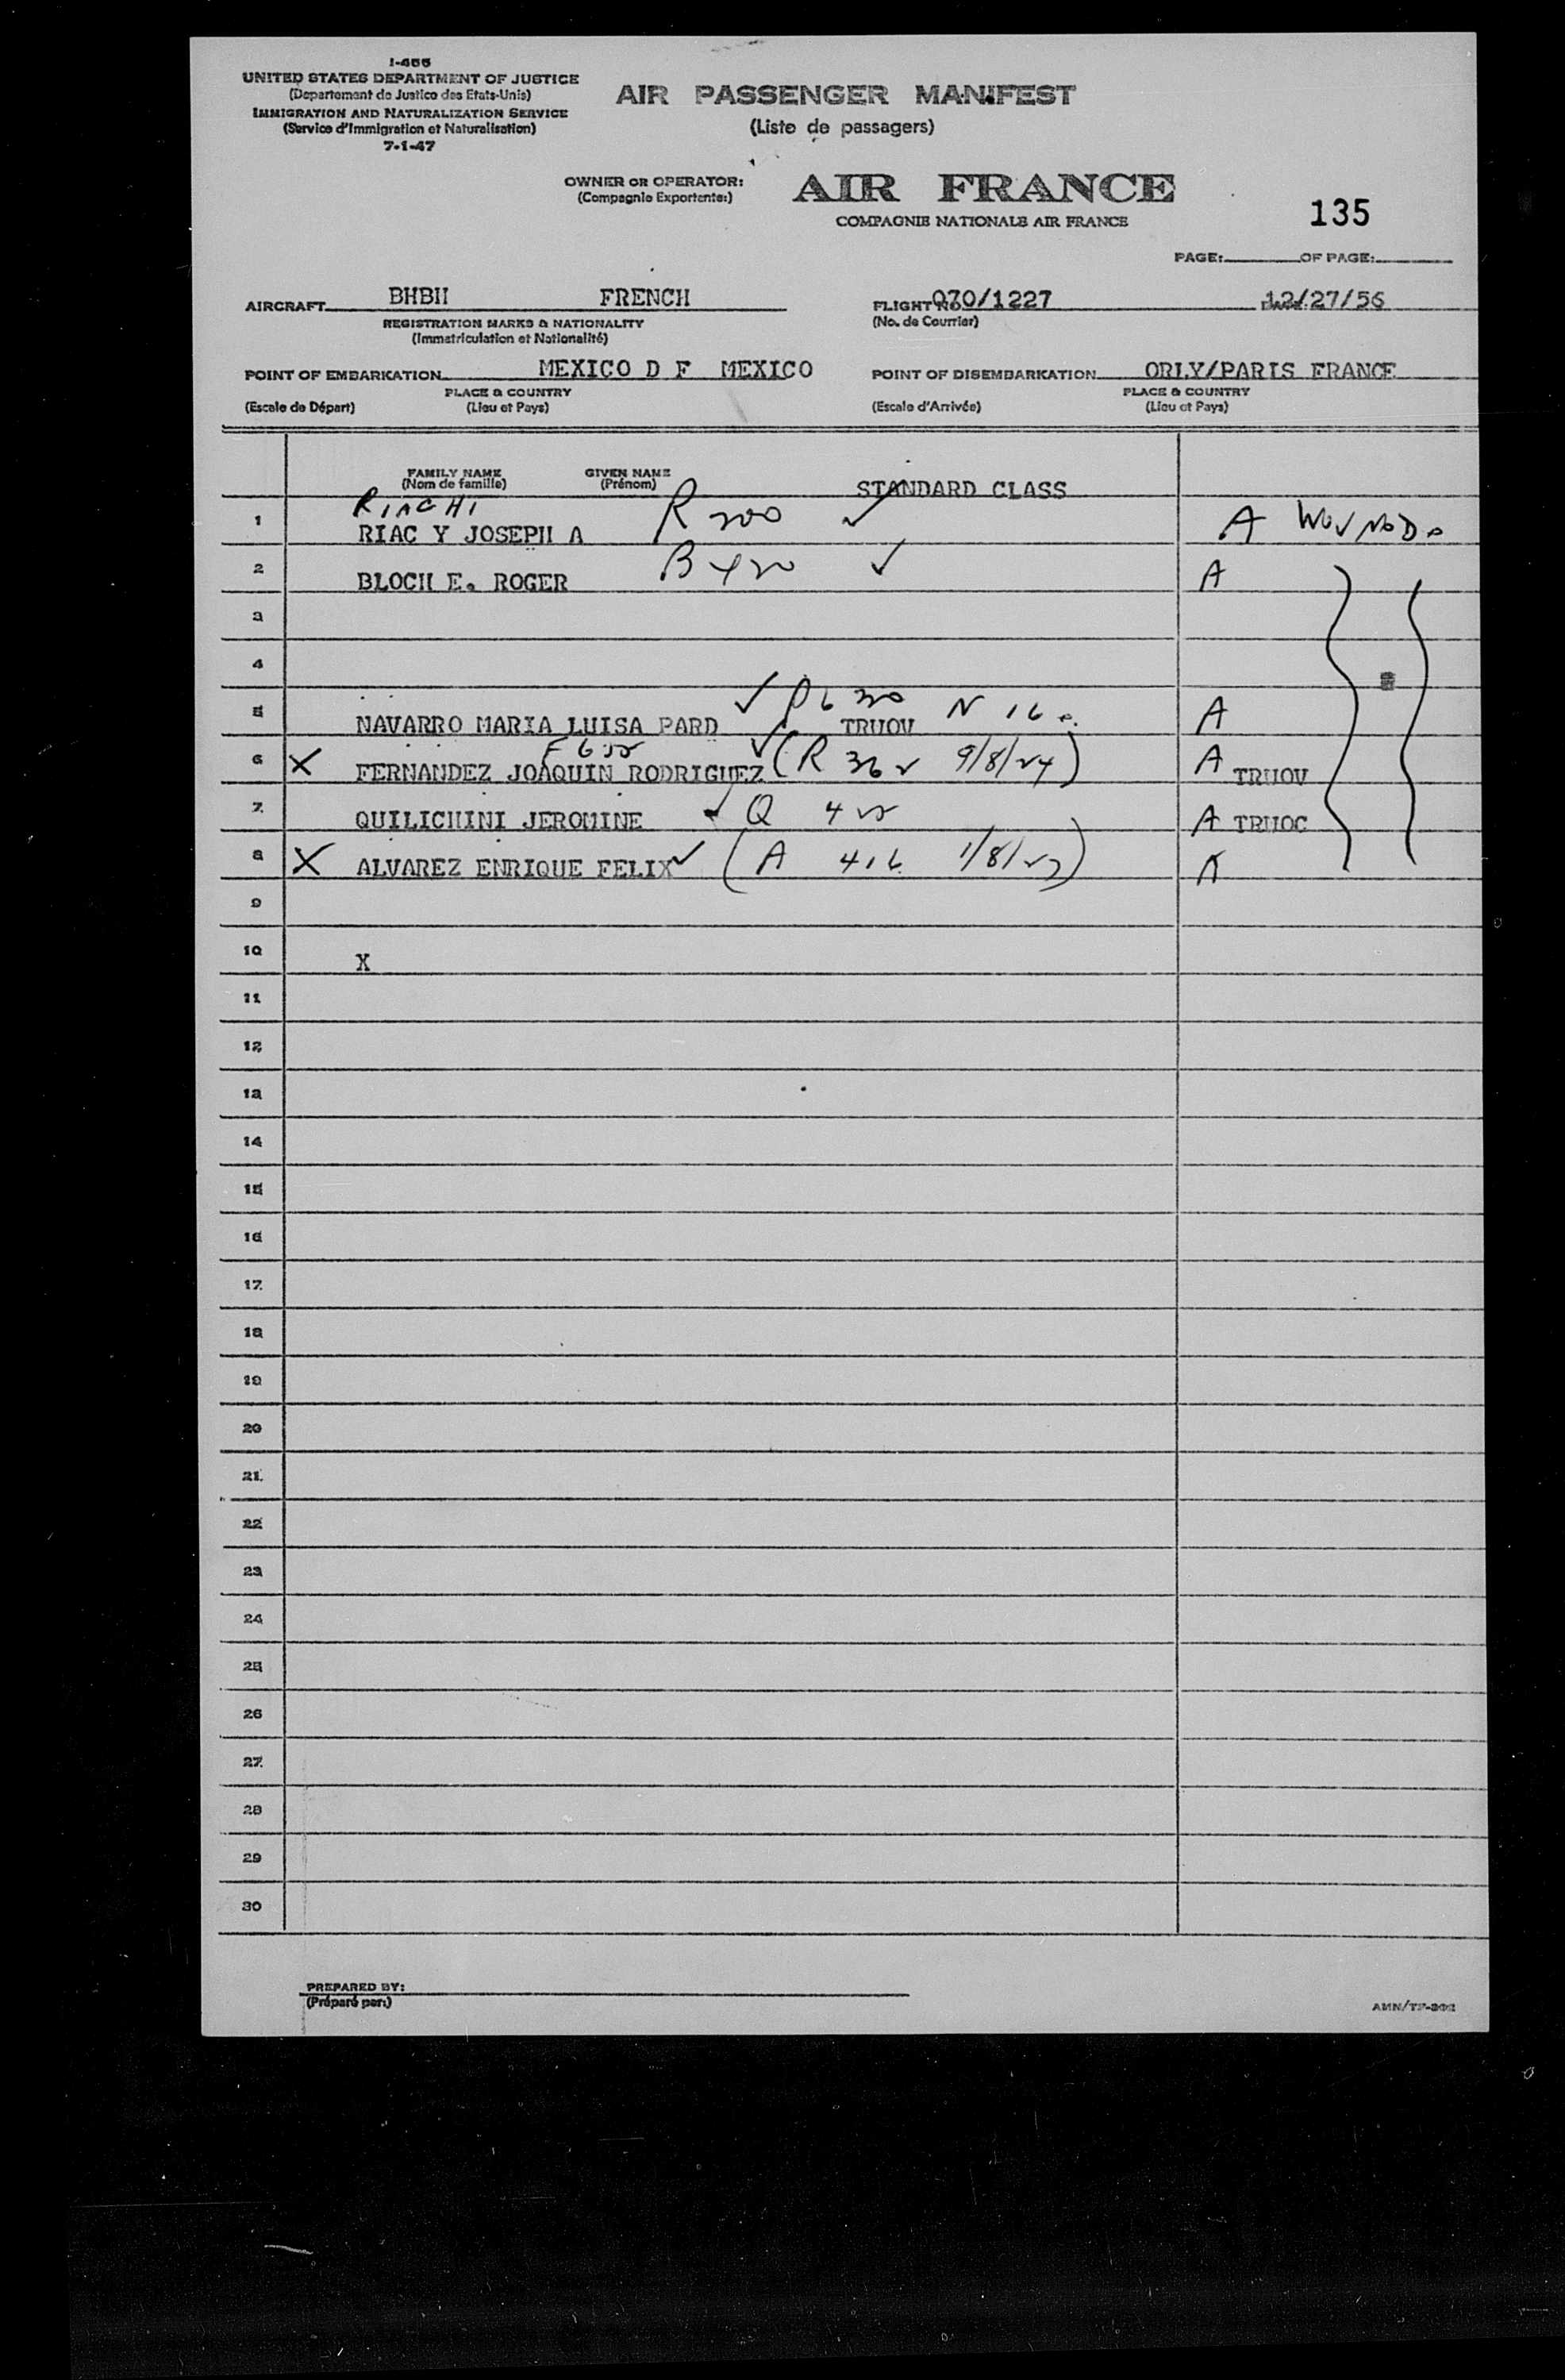 I-466
UNITED STATES DEPARTMENT OF JUSTICE
(Departement de Justice des Etats-Unis)
IMMIGRATION AND NATURALIZATION SERVICE
(Service d'Immigration et Naturalisation)
7-1-47
AIR PASSENGER MANIFEST
(Liste de passagers)
OWNER OR OPERATOR:
(Compagnie Exportente:)
AIR FRANCE
COMPAGNIE NATIONALE AIR FRANCE
135
PAGE: OF PAGE:
AIRCRAFT BHBH FRENCH FLIGHT NO. 070/1227 12/27/56
REGISTRATION MARKS & NATIONALITY (No. de Courrier)
(Immatriculation et Nationalité)
POINT OF EMBARKATION MEXICO D F MEXICO POINT OF DISEMBARKATION ORLY/PARIS FRANCE
PLACE & COUNTRY PLACE & COUNTRY
(Escale de Départ) (Lieu et Pays) (Escale d'Arrivée) (Lieu et Pays)
FAMILY NAME GIVEN NAME
(Nom de famille) (Prénom) STANDARD CLASS
RIACHI
1 RIAC Y JOSEPH A R 200 ✓ A
2 BLOCH E. ROGER B 420 ✓ A
3
4
5 NAVARRO MARIA LUISA PARD ✓ P630 TRUOV N 16 A
F 655
6 X FERNANDEZ JOAQUIN RODRIGUEZ ✓ (R 362 9/8/24) A TRUOV
7 QUILICHINI JEROMINE ✓ Q 422 A TRUOC
8 X ALVAREZ ENRIQUE FELIX ✓ (A 416 1/8/23) A
9
10 X
11
12
13
14
15
16
17
18
19
20
21
22
23
24
25
26
27
28
29
30
PREPARED BY:
(Préparé par:)